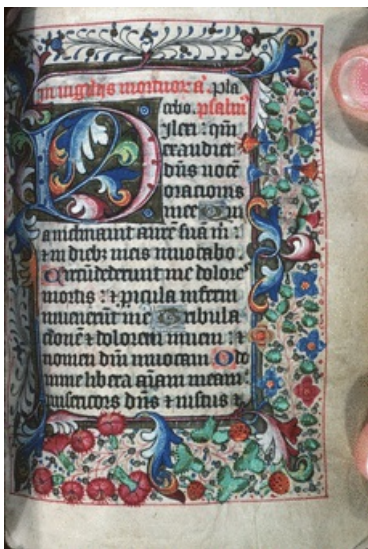 In vigilijs mortuor a. pla
cebo. psalm
Dilexi: qm
exaudiet
dns voce
oracionis
mee Qui
a inclinauit aure sua m:
et in dieb meis inuocabo.
Circudederunt me dolores
mortis: et picula inferni
inuenert me Tribula
cione et dolorem inueni: et
nomen dni inuocaui O do
mine libera aiam meam
misericors dns et iustus et